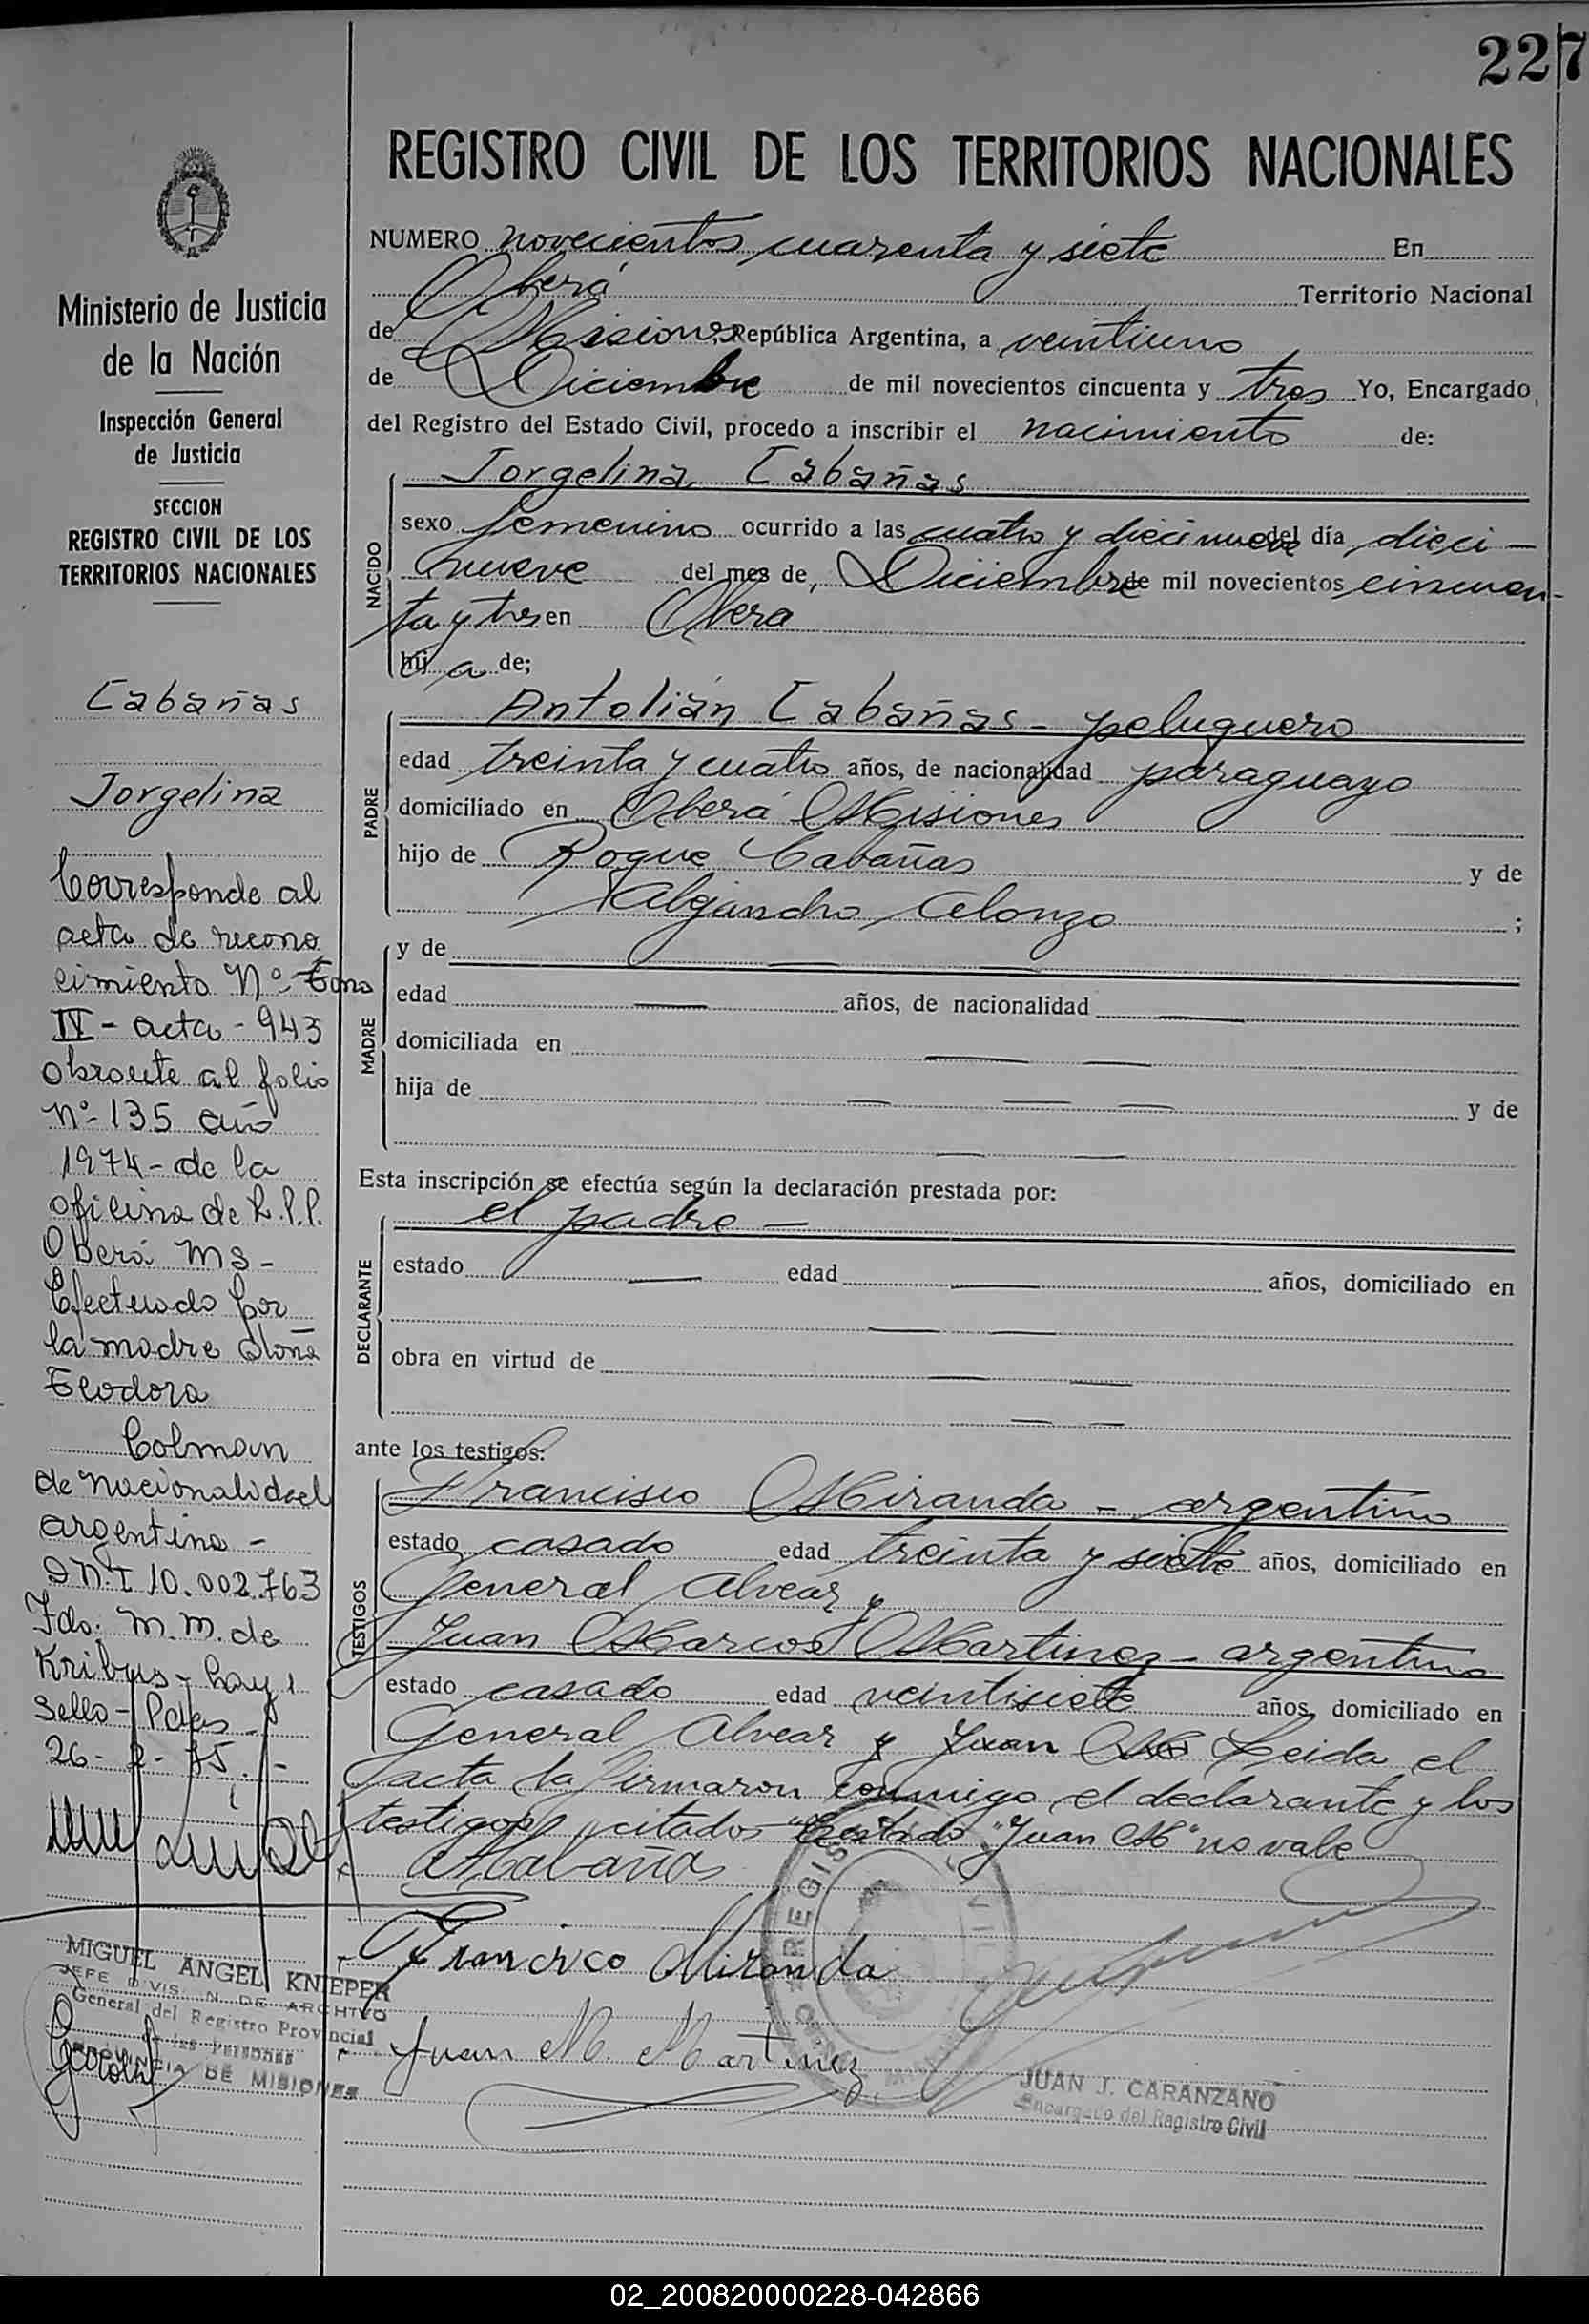 227
REGISTRO CIVIL DE LOS TERRITORIOS NACIONALES
NUMERO novecientos cuarenta y siete En
Oberá Territorio Nacional
de Misiones República Argentina, a veintiuno
de Diciembre de mil novecientos cincuenta y tres Yo, Encargado
del Registro del Estado Civil, procedo a inscribir el nacimiento de:
NACIDO
Jorgelina Cabañas
sexo femenino ocurrido a las cuatro y diecinueve del día dieci-
nueve del mes de Diciembre de mil novecientos cincuen-
ta y tres en Obera
hij a de;
PADRE
Antolián Cabañas - peluquero
edad treinta y cuatro años, de nacionalidad paraguayo
domiciliado en Oberá Misiones
hijo de Roque Cabañas y de
Alejandra Alonzo ;
MADRE
y de
edad años, de nacionalidad
domiciliada en
hija de y de
Esta inscripción se efectúa según la declaración prestada por:
DECLARANTE
el padre -
estado edad años, domiciliado en
obra en virtud de
ante los testigos:
TESTIGOS
Francisco Miranda - argentino
estado casado edad treinta y siete años, domiciliado en
General Alvear y
Juan Marcos Martinez - argentino
estado casado edad veintisiete años, domiciliado en
General Alvear y Juan M Leida el
acta la firmaron conmigo el declarante y los
testigos citados "Testado "Juan M" no vale
ACabañas
Francisco Miranda
Juan M. Martinez
REGIS
JUAN J. CARANZANO
Encargado del Registro Civil
Ministerio de Justicia
de la Nación
Inspección General
de Justicia
SECCION
REGISTRO CIVIL DE LOS
TERRITORIOS NACIONALES
Cabañas
Jorgelina
Corresponde al
acta de recono
cimiento Nº Tomo
IV - acta - 943
obrante al folio
Nº 135 año
1974 - de la
oficina de R.P.P.
Oberá Ms -
Efectuado por
la madre doña
Teodora
Colman
de nacionalidad
argentina -
DNI 10.002.763
Fdo: M.M. de
Kribus - hay 1
Sello - Pdas
26-2-75.-
MIGUEL ANGEL KNIEPER
JEFE DIVIS. N. DE ARCHIVO
General del Registro Provincial
de las Personas
PROVINCIA DE MISIONES
02_200820000228-042866